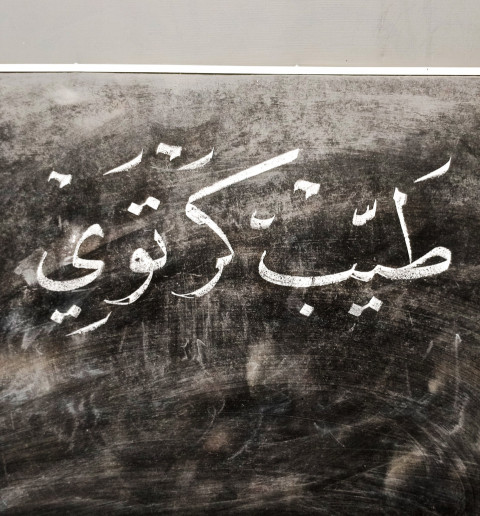 طَيّبْ كَرْتَوِيْ